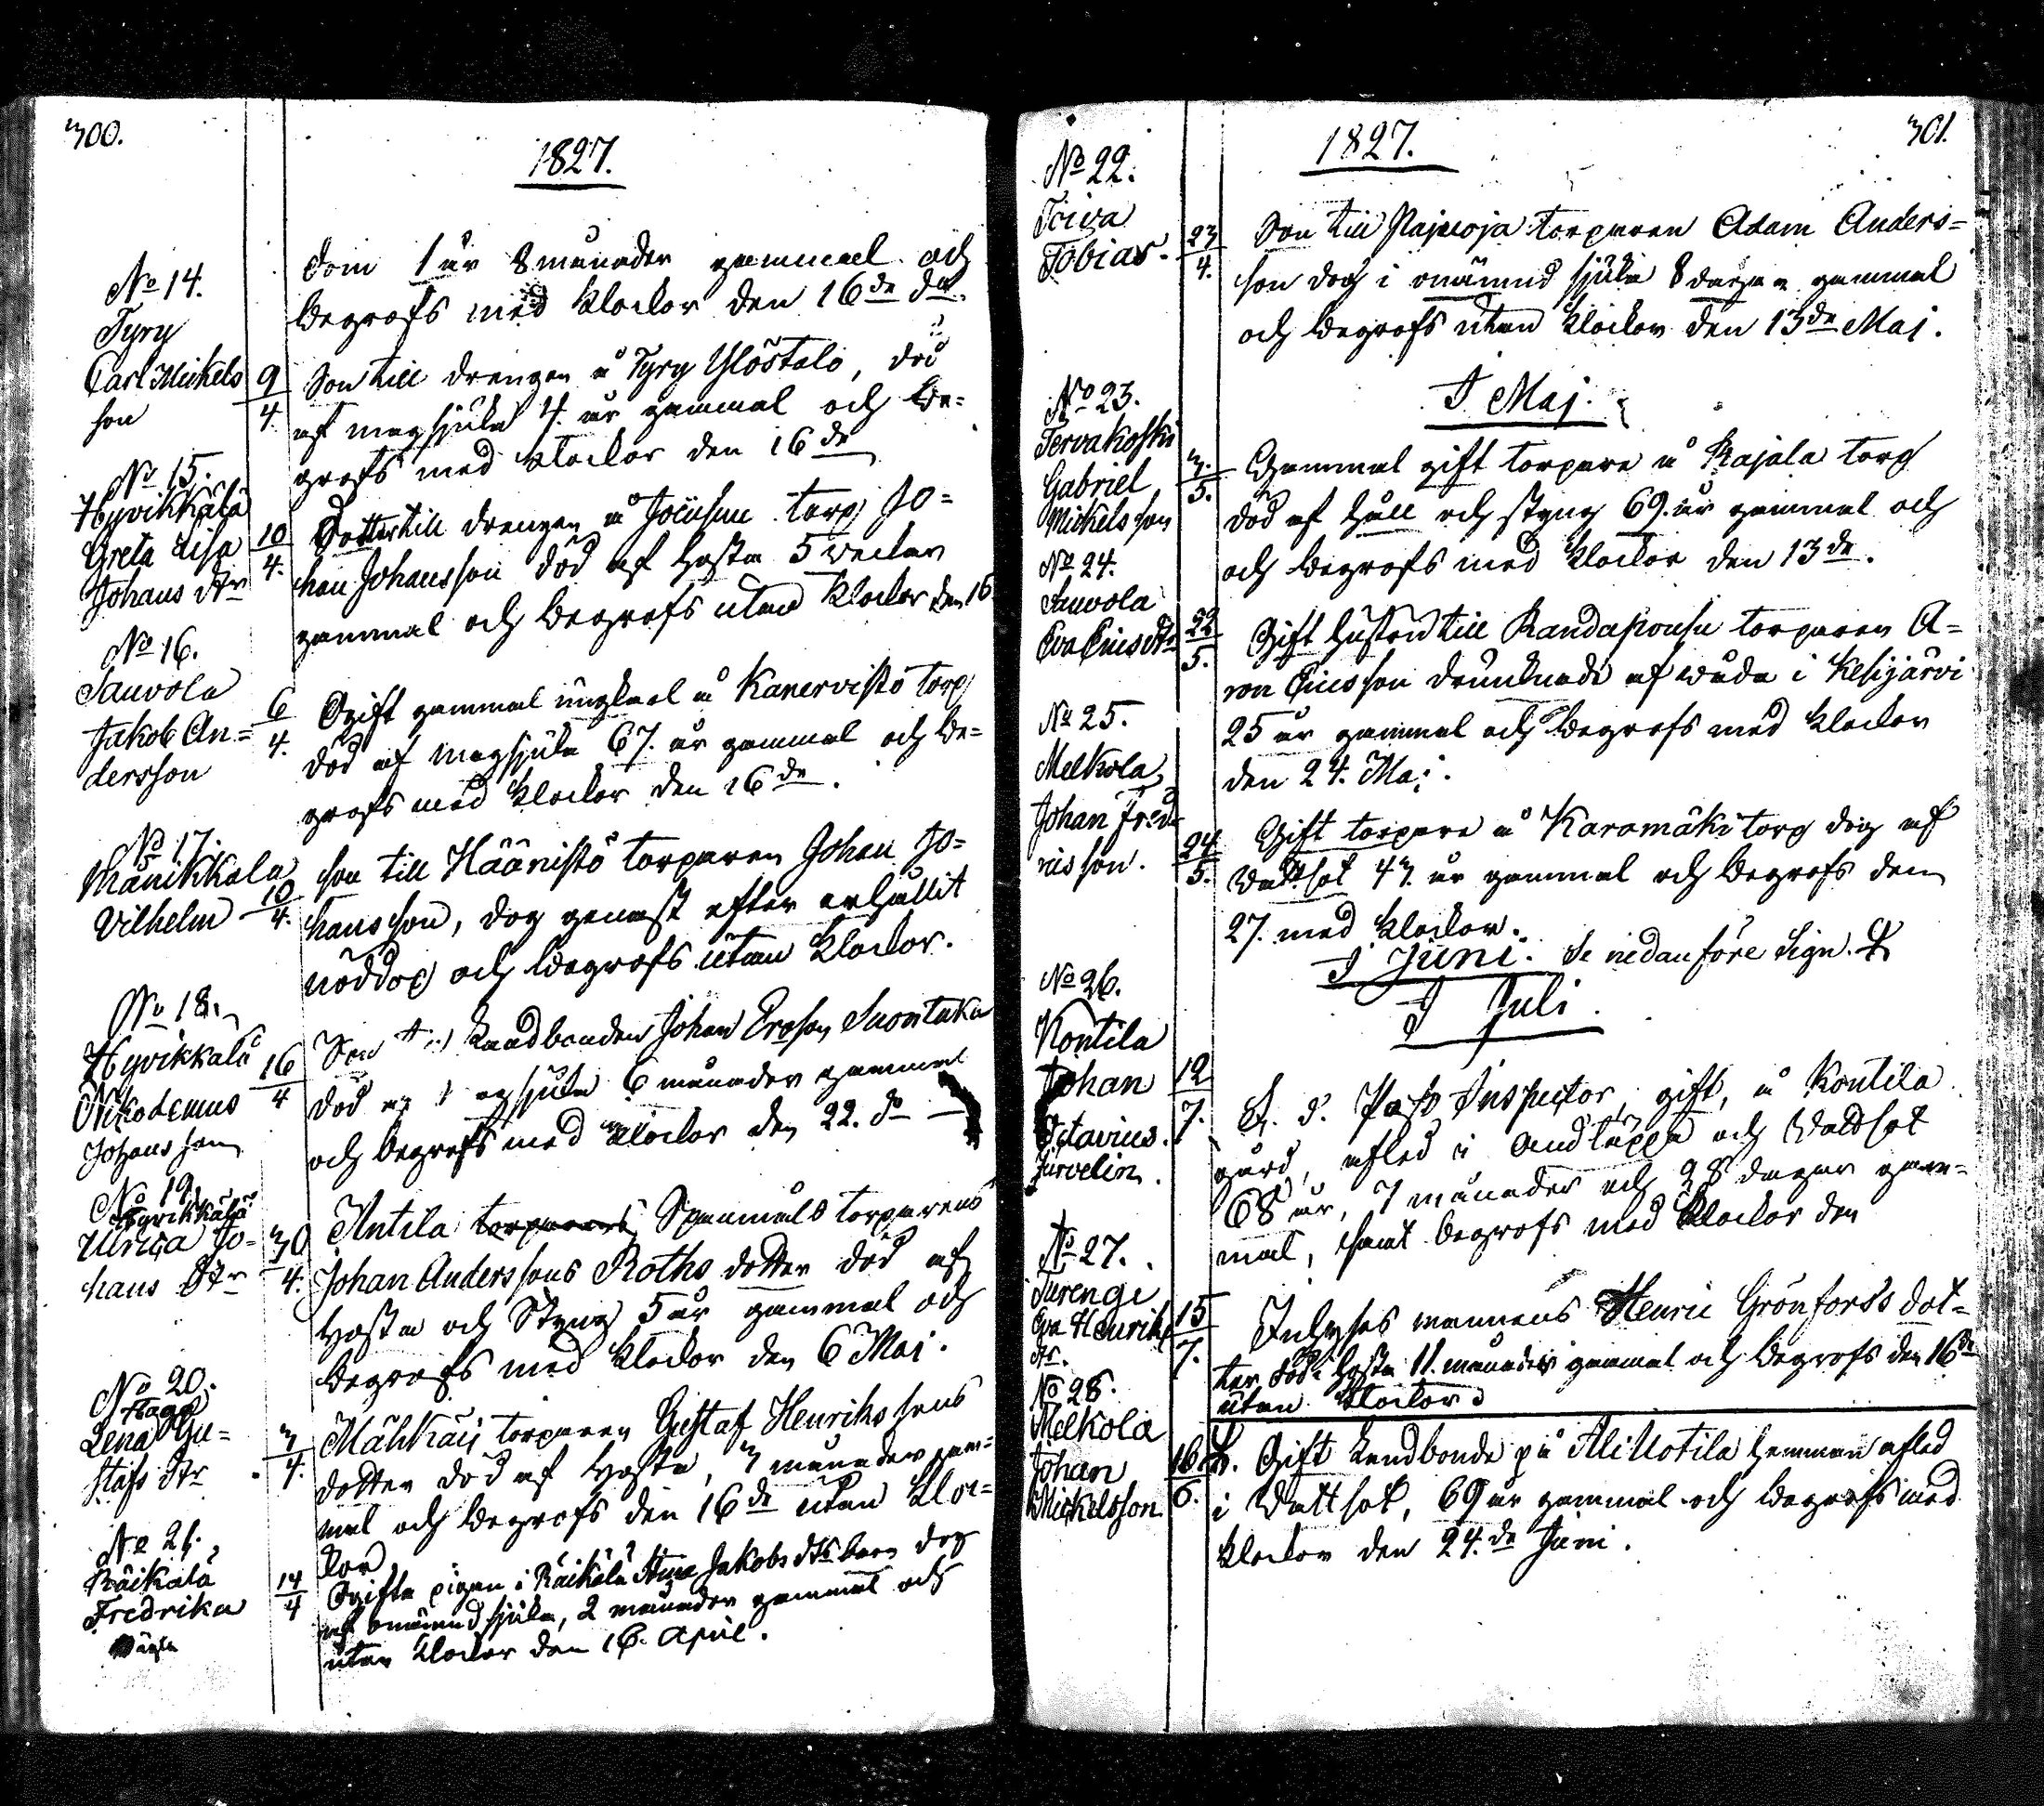 300.
1827.
dom 1 år 8 månader gammal och
begrofs med klockor den 16de do.
No 14.
Tyry
Carl Mickels
son
9
4
Son till drengen å Tyry Ylöstalo, död
af magsjuka 4. år gammal och be=
grofs med klockor den 16de
No 15.
Hyvikkälä
Greta Lisa
Johans dtr
10
4.
Dotter till drengen å torp Jo=
han Johansson död af hosta 5 veckor
gammal och begrofs utan klockor den 16
No 16.
Sauvola
Jakob An=
dersson
6
4.
Ogift gammal ungkarl å Kanervistö torp
död af magsjuka 67. år gammal och be=
grofs med klockor den 16de.
No 17.
Mänikkälä
Vilhelm
10
4.
son till Häänistö torparen Johan Jo=
hansson, dog genast efter erhållit
nöddop och begrofs utan klockor.
No 18.
Hyvikkälä
Nikodemus
Johansson
16
4
Son till Landbonden Johan Ersson Suontaka
död af magsjuka 6 månader gammal
och begrofs med klockor den 22. do
No 19.
Hyvikkälä
Ulrica Jo=
hans dtr
30
4.
Antila torparens Spanmåls torparens
Johan Anderssons Roths dotter död af
hosta och Styng 5 år gammal och
begrofs med klockor den 6 Maj.
No 20.
Haga
Lena Gu=
stafs dtr
3
4.
torparen Gustaf Henrikssons
dotter död af hosta, 3 månader gam=
mal och begrofs den 16de utan kloc=
kor.
No 21.
Räikälä
Fredrika
oägta
14
4
Ogifta pigan i Räikälä Stina Jakobs dtrs barn dog
af onämnd sjuka, 2 månader gammal och
utan klockor den 16. April.
301.
1827.
No 22.
Toiva
Tobias.
23
4.
Son till Pajuoja torparen Adam Anders=
son dog i onämnd sjuka 8 dagar gammal
och begrofs utan klockor den 13de Maj.
I Maj.
No 23.
Tervakoski
Gabriel
Mickelsson
3.
5.
Gammal gift torpare å Rajala torp
död af håll och styng 69. år gammal och
och begrofs med klockor den 13de.
No 24.
Sauvola
Eva Erics dtr
22
5.
Gift hustru till torparen A=
ron Ericsson drunknade af våda i Kesijärvi
25 år gammal och begrofs med klockor
den 24. Maj.
No 25.
Melkola
Johan Fred=
ricsson.
24
5.
Gift torpare å Karamäki torp dog af
Vattsot 43. år gammal och begrofs den
27. med klockor.
I Juni. Se nedanföre Sign.
I Juli.
No 26.
Kontila
Johan
Octavius.
Järvelin.
12
7.
F. d. Post Inspector, gift, å Kontila
gård, afled i andtäppa och Vattsot
68 år, 7 månader och 28 dagar gam=
mal, samt begrofs med klockor den
No 27.
Turengi
Eva Henriks
dtr.
15
7.
Inhyses mannens Henric Grönfors's dot=
ter död i hosta 11. månader gammal och begrofs den 16de
utan klockor
No 28.
Melkola
Johan
Mickelsson
16
6.
Gift Landbonde på Ali Uotila hemman afled
i Vattsot, 69 år gammal och begrofs med
klockor den 24.de Juni.